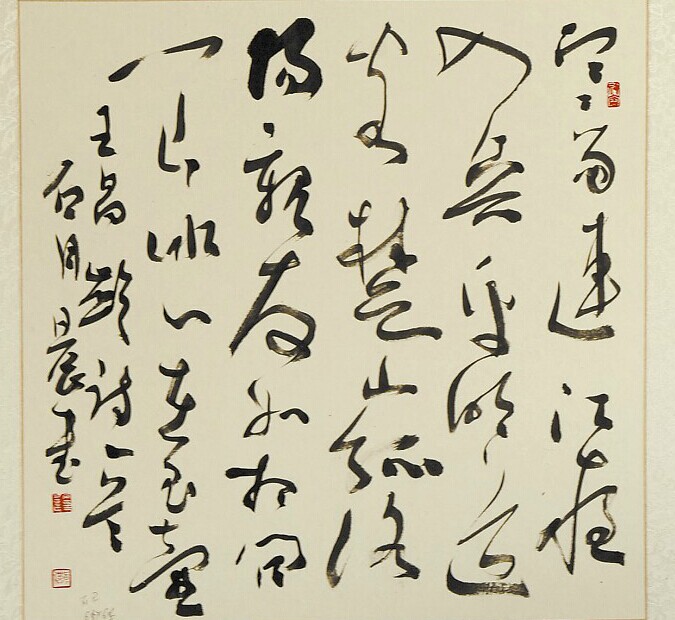 寒雨連江夜
入吳平明送
客楚山孤洛
陽親友如相問
一片冰心在玉壺
王昌齡詩一首
石 晨書